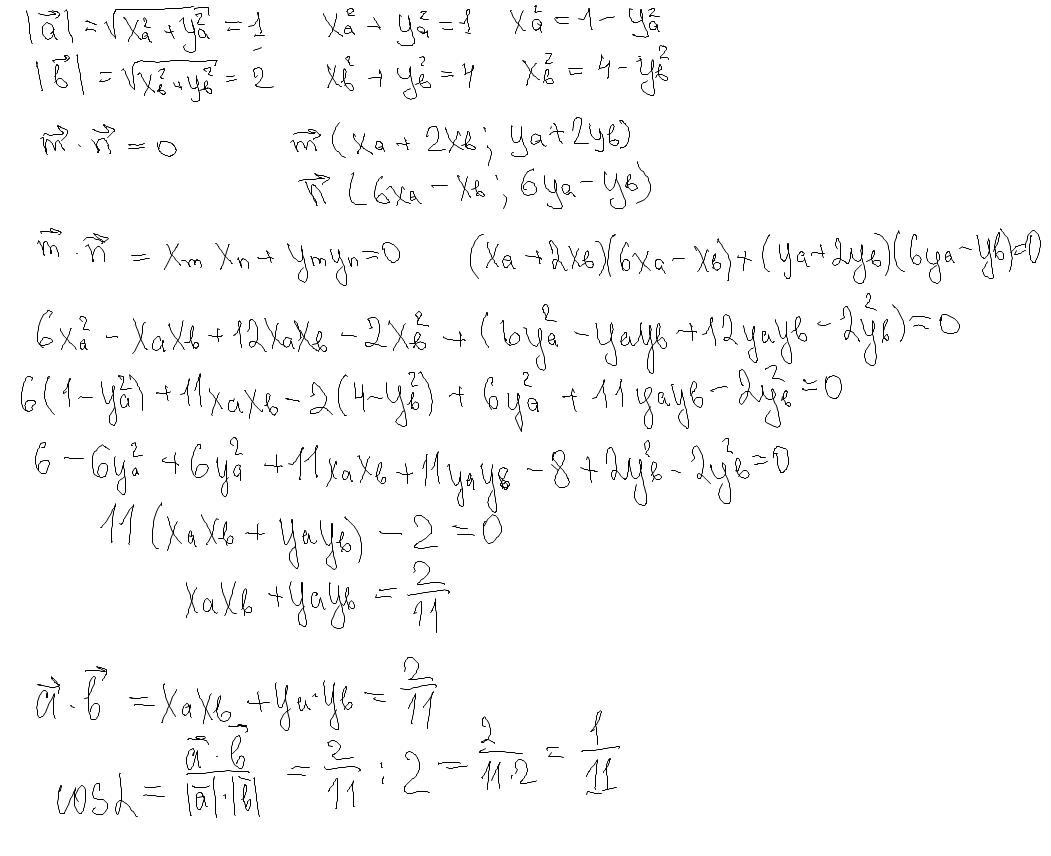 |a⃗| = √(xₐ² + yₐ²) = 1   xₐ² + yₐ² = 1   xₐ² = 1 - yₐ²
|b⃗| = √(x_b² + y_b²) = 2   x_b² + y_b² = 4   x_b² = 4 - y_b²
m⃗ · n⃗ = 0   m⃗ (xₐ + 2x_b; yₐ + 2y_b)
n⃗ (6xₐ - x_b; 6yₐ - y_b)
m⃗ · n⃗ = x_m x_n + y_m y_n = 0   (xₐ + 2x_b)(6xₐ - x_b) + (yₐ + 2y_b)(6yₐ - y_b) = 0
6xₐ² - xₐx_b + 12xₐx_b - 2x_b² + (6yₐ² - yₐy_b + 12yₐy_b - 2y_b²) = 0
6(1 - yₐ²) + 11xₐx_b - 2(4 - y_b²) + 6yₐ² + 11yₐy_b - 2y_b² = 0
6 - 6yₐ² + 6yₐ² + 11xₐx_b + 11yₐy_b - 8 + 2y_b² - 2y_b² = 0
11(xₐx_b + yₐy_b) - 2 = 0
xₐx_b + yₐy_b = 2/11
a⃗ · b⃗ = xₐx_b + yₐ·y_b = 2/11
cos α = (a⃗ · b⃗)/(|a⃗|·|b⃗|) = 2/11 : 2 = 2/(11·2) = 1/11